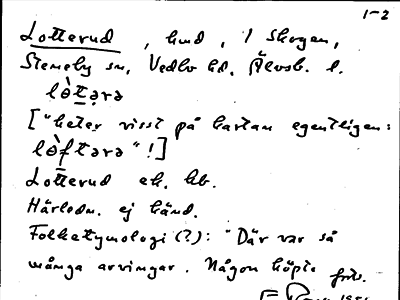 1-2
Lotterud, hmd, i Skogen,
Steneby sn, Vedbo hd, Älvsb. l.
lò̀t̠ərə
["heter visst på kartan egentligen:
lòftərə"!]
Lotterud ek. kb.
Härledn. ej känd.
Folketymologi (?): "Där var så
många arvingar. Någon köpte